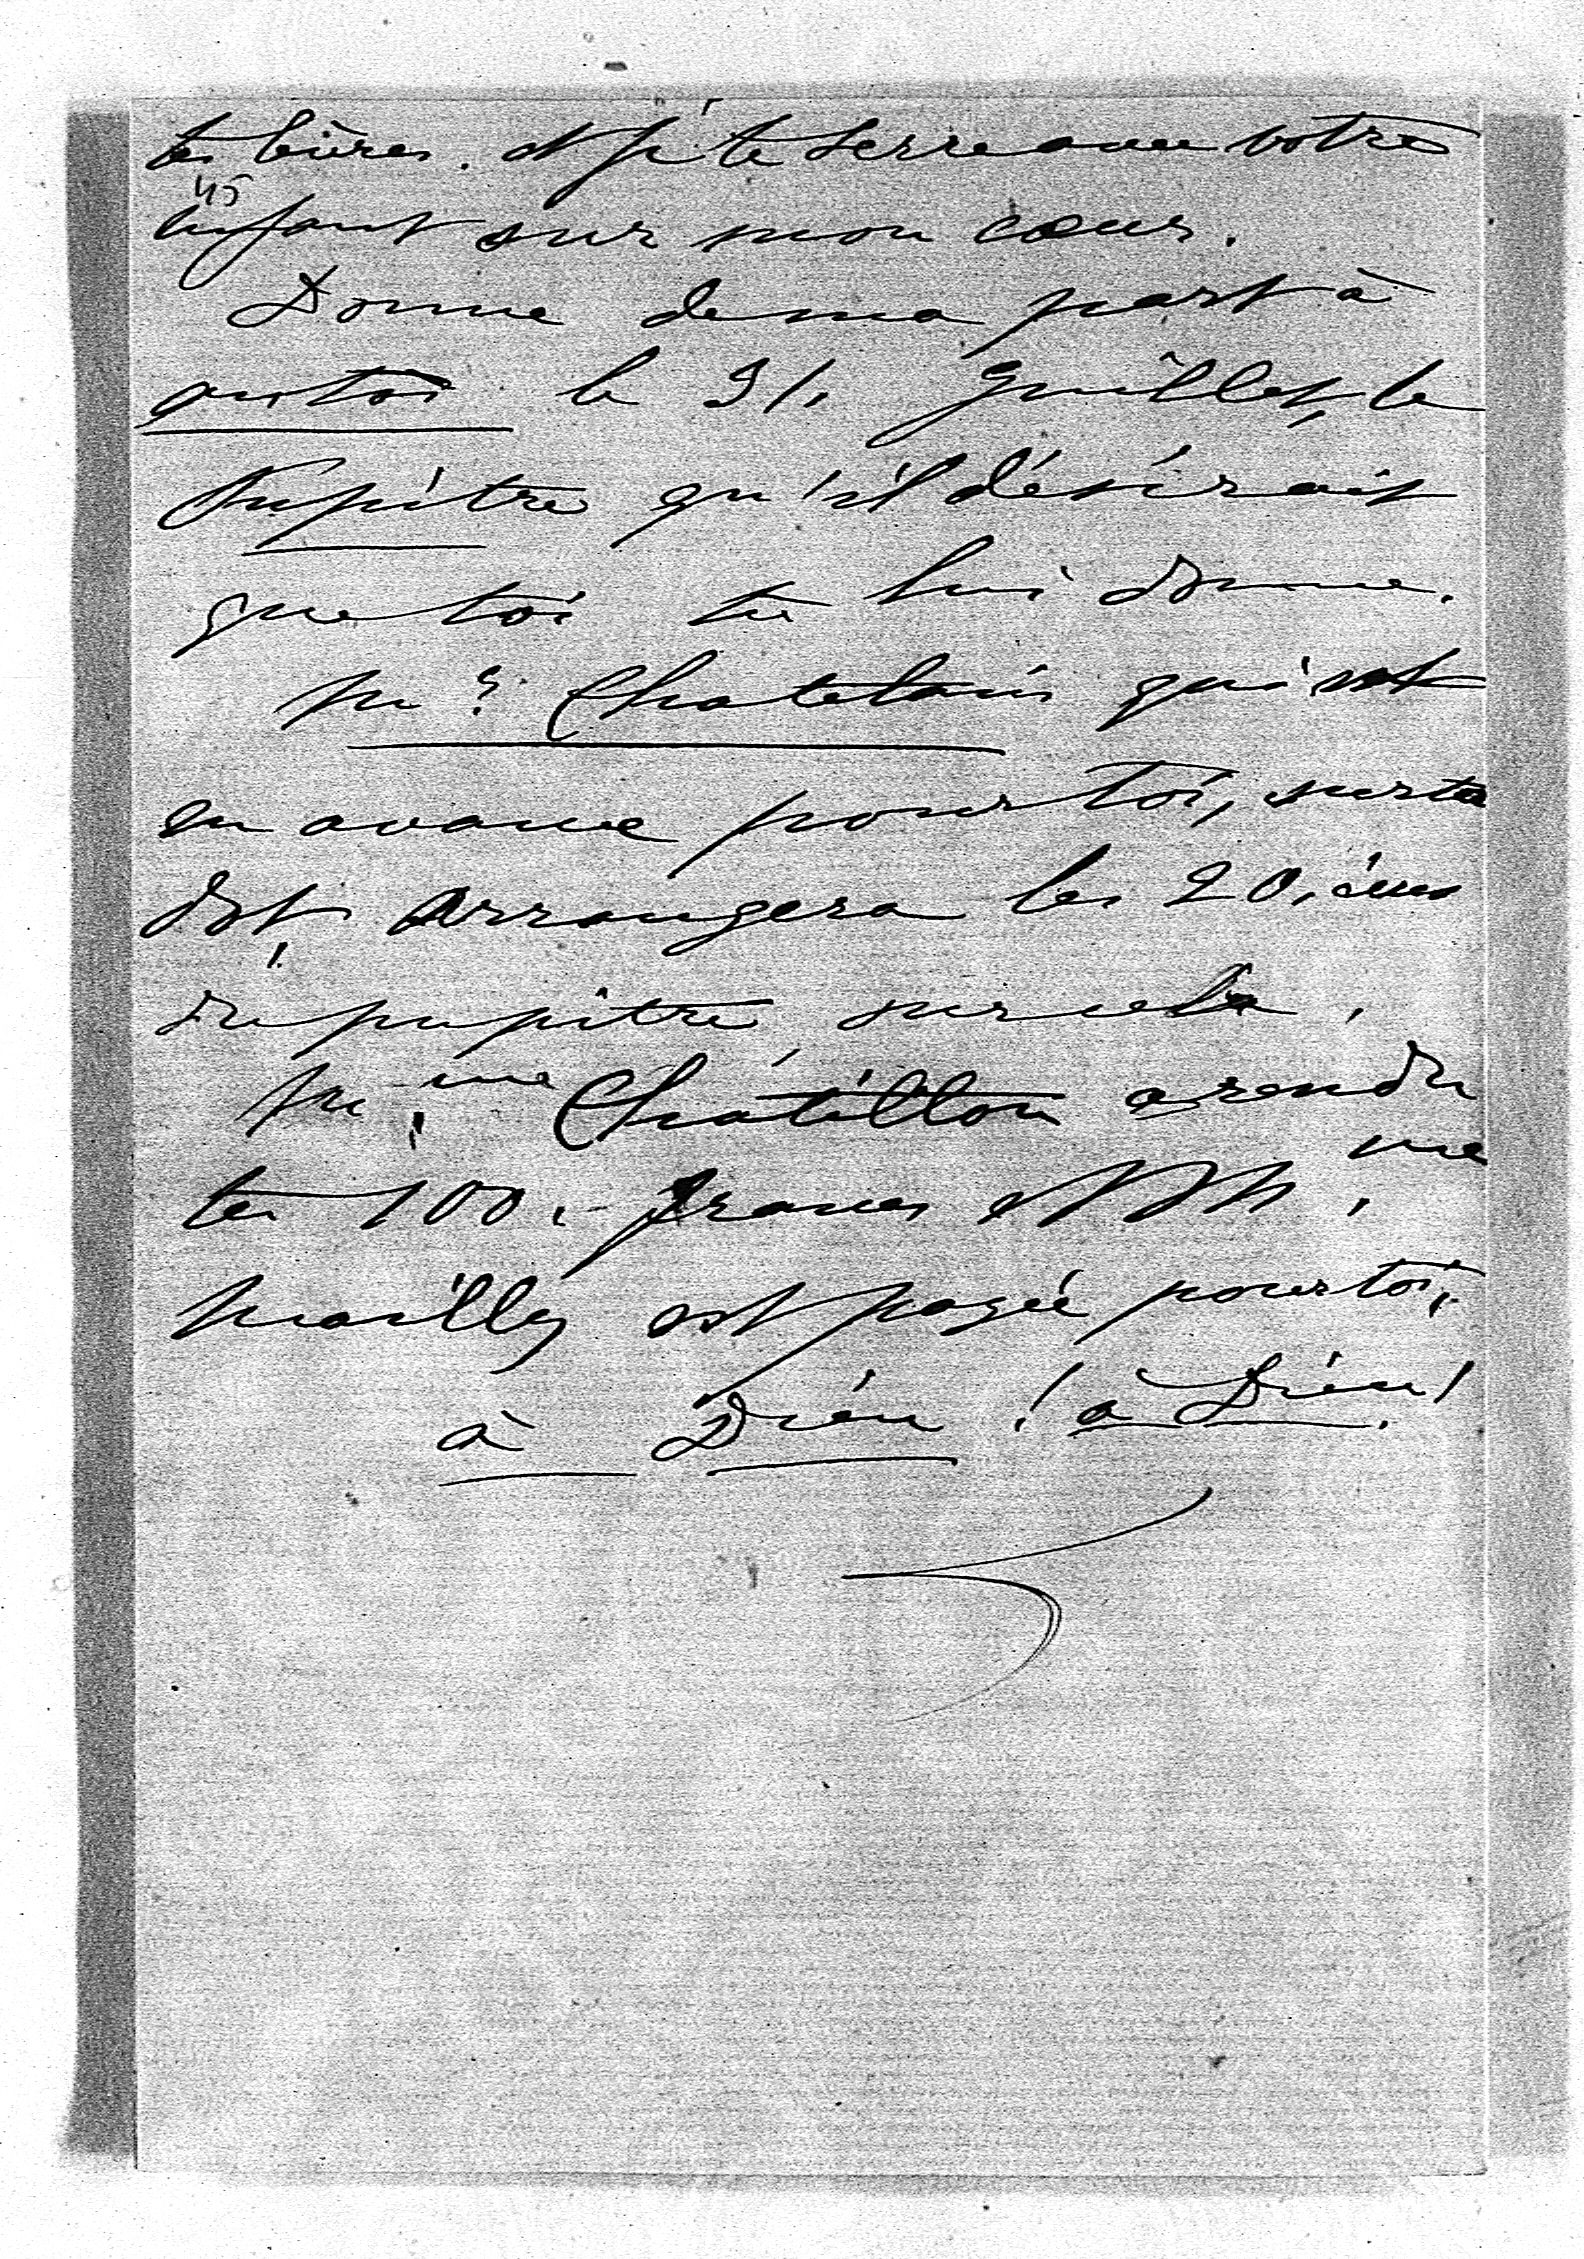 tes lèvres. et je te serre avec votre
45
enfant sur mon cœur.
Donne de ma part à
le 31. Juillet, le
Pupitre qu'il désirait
que toi tu lui donne.
Mr. Chatelain qui est
en avance pour toi, sur ta
dot, arrangera les
du pupitre sur cela.
Mme Châtillon a rendu
tes 100.- francs et Mme
Mailly est payée pour toi.
à Dieu ! à Dieu !